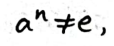 aⁿ ≠ e,